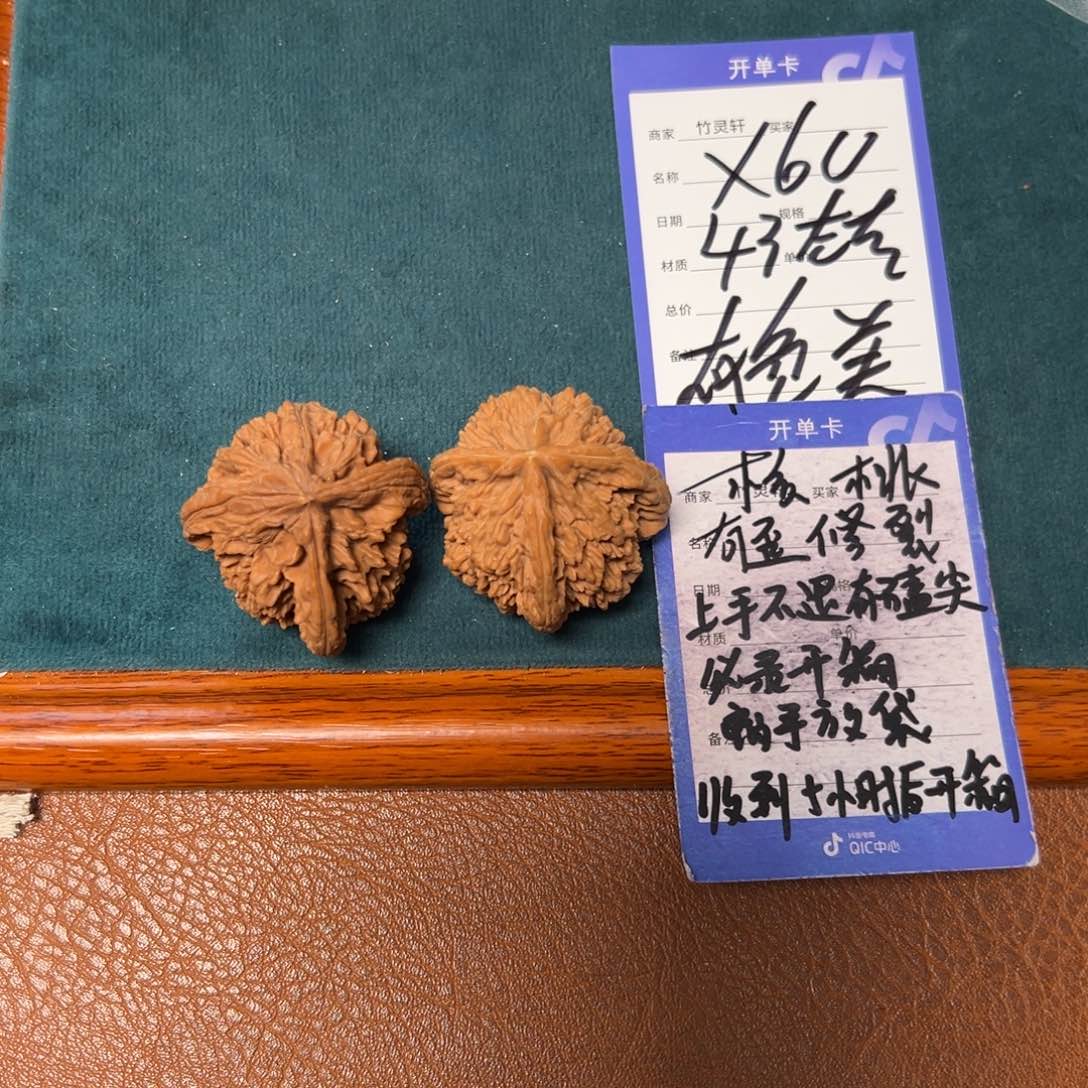 开单卡
商家 竹灵轩 买家
X60
名称
日期 规格
43左右
材质 单价
总价
有色差
备注
开单卡
核桃
商家 买家
有歪修裂
名称
上手不退有磕尖
日期 格
材质 单价
必录开箱
手放袋
备注
收到十小时后开箱
抖音电商
QIC中心